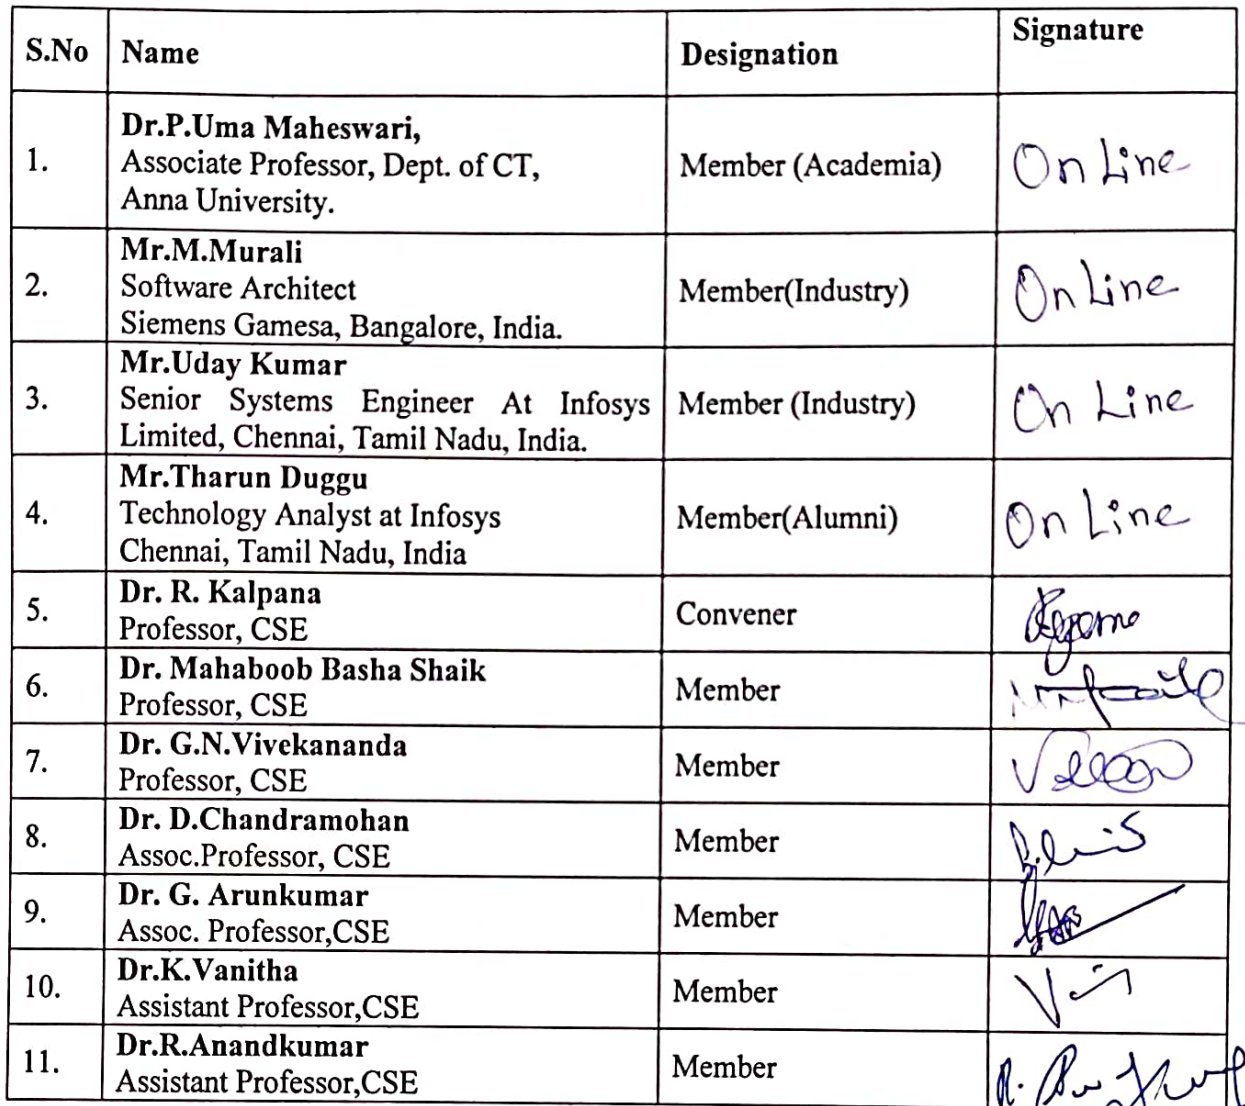 S.No Name Designation Signature
1. Dr.P.Uma Maheswari,
Associate Professor, Dept. of CT,
Anna University.
Member (Academia) On Line
2. Mr.M.Murali
Software Architect
Siemens Gamesa, Bangalore, India.
Member(Industry) On Line
3. Mr.Uday Kumar
Senior Systems Engineer At Infosys
Limited, Chennai, Tamil Nadu, India.
Member (Industry) On Line
4. Mr.Tharun Duggu
Technology Analyst at Infosys
Chennai, Tamil Nadu, India
Member(Alumni) On Line
5. Dr. R. Kalpana
Professor, CSE
Convener
6. Dr. Mahaboob Basha Shaik
Professor, CSE
Member
7. Dr. G.N.Vivekananda
Professor, CSE
Member
8. Dr. D.Chandramohan
Assoc.Professor, CSE
Member
9. Dr. G. Arunkumar
Assoc. Professor,CSE
Member
10. Dr.K.Vanitha
Assistant Professor,CSE
Member
11. Dr.R.Anandkumar
Assistant Professor,CSE
Member